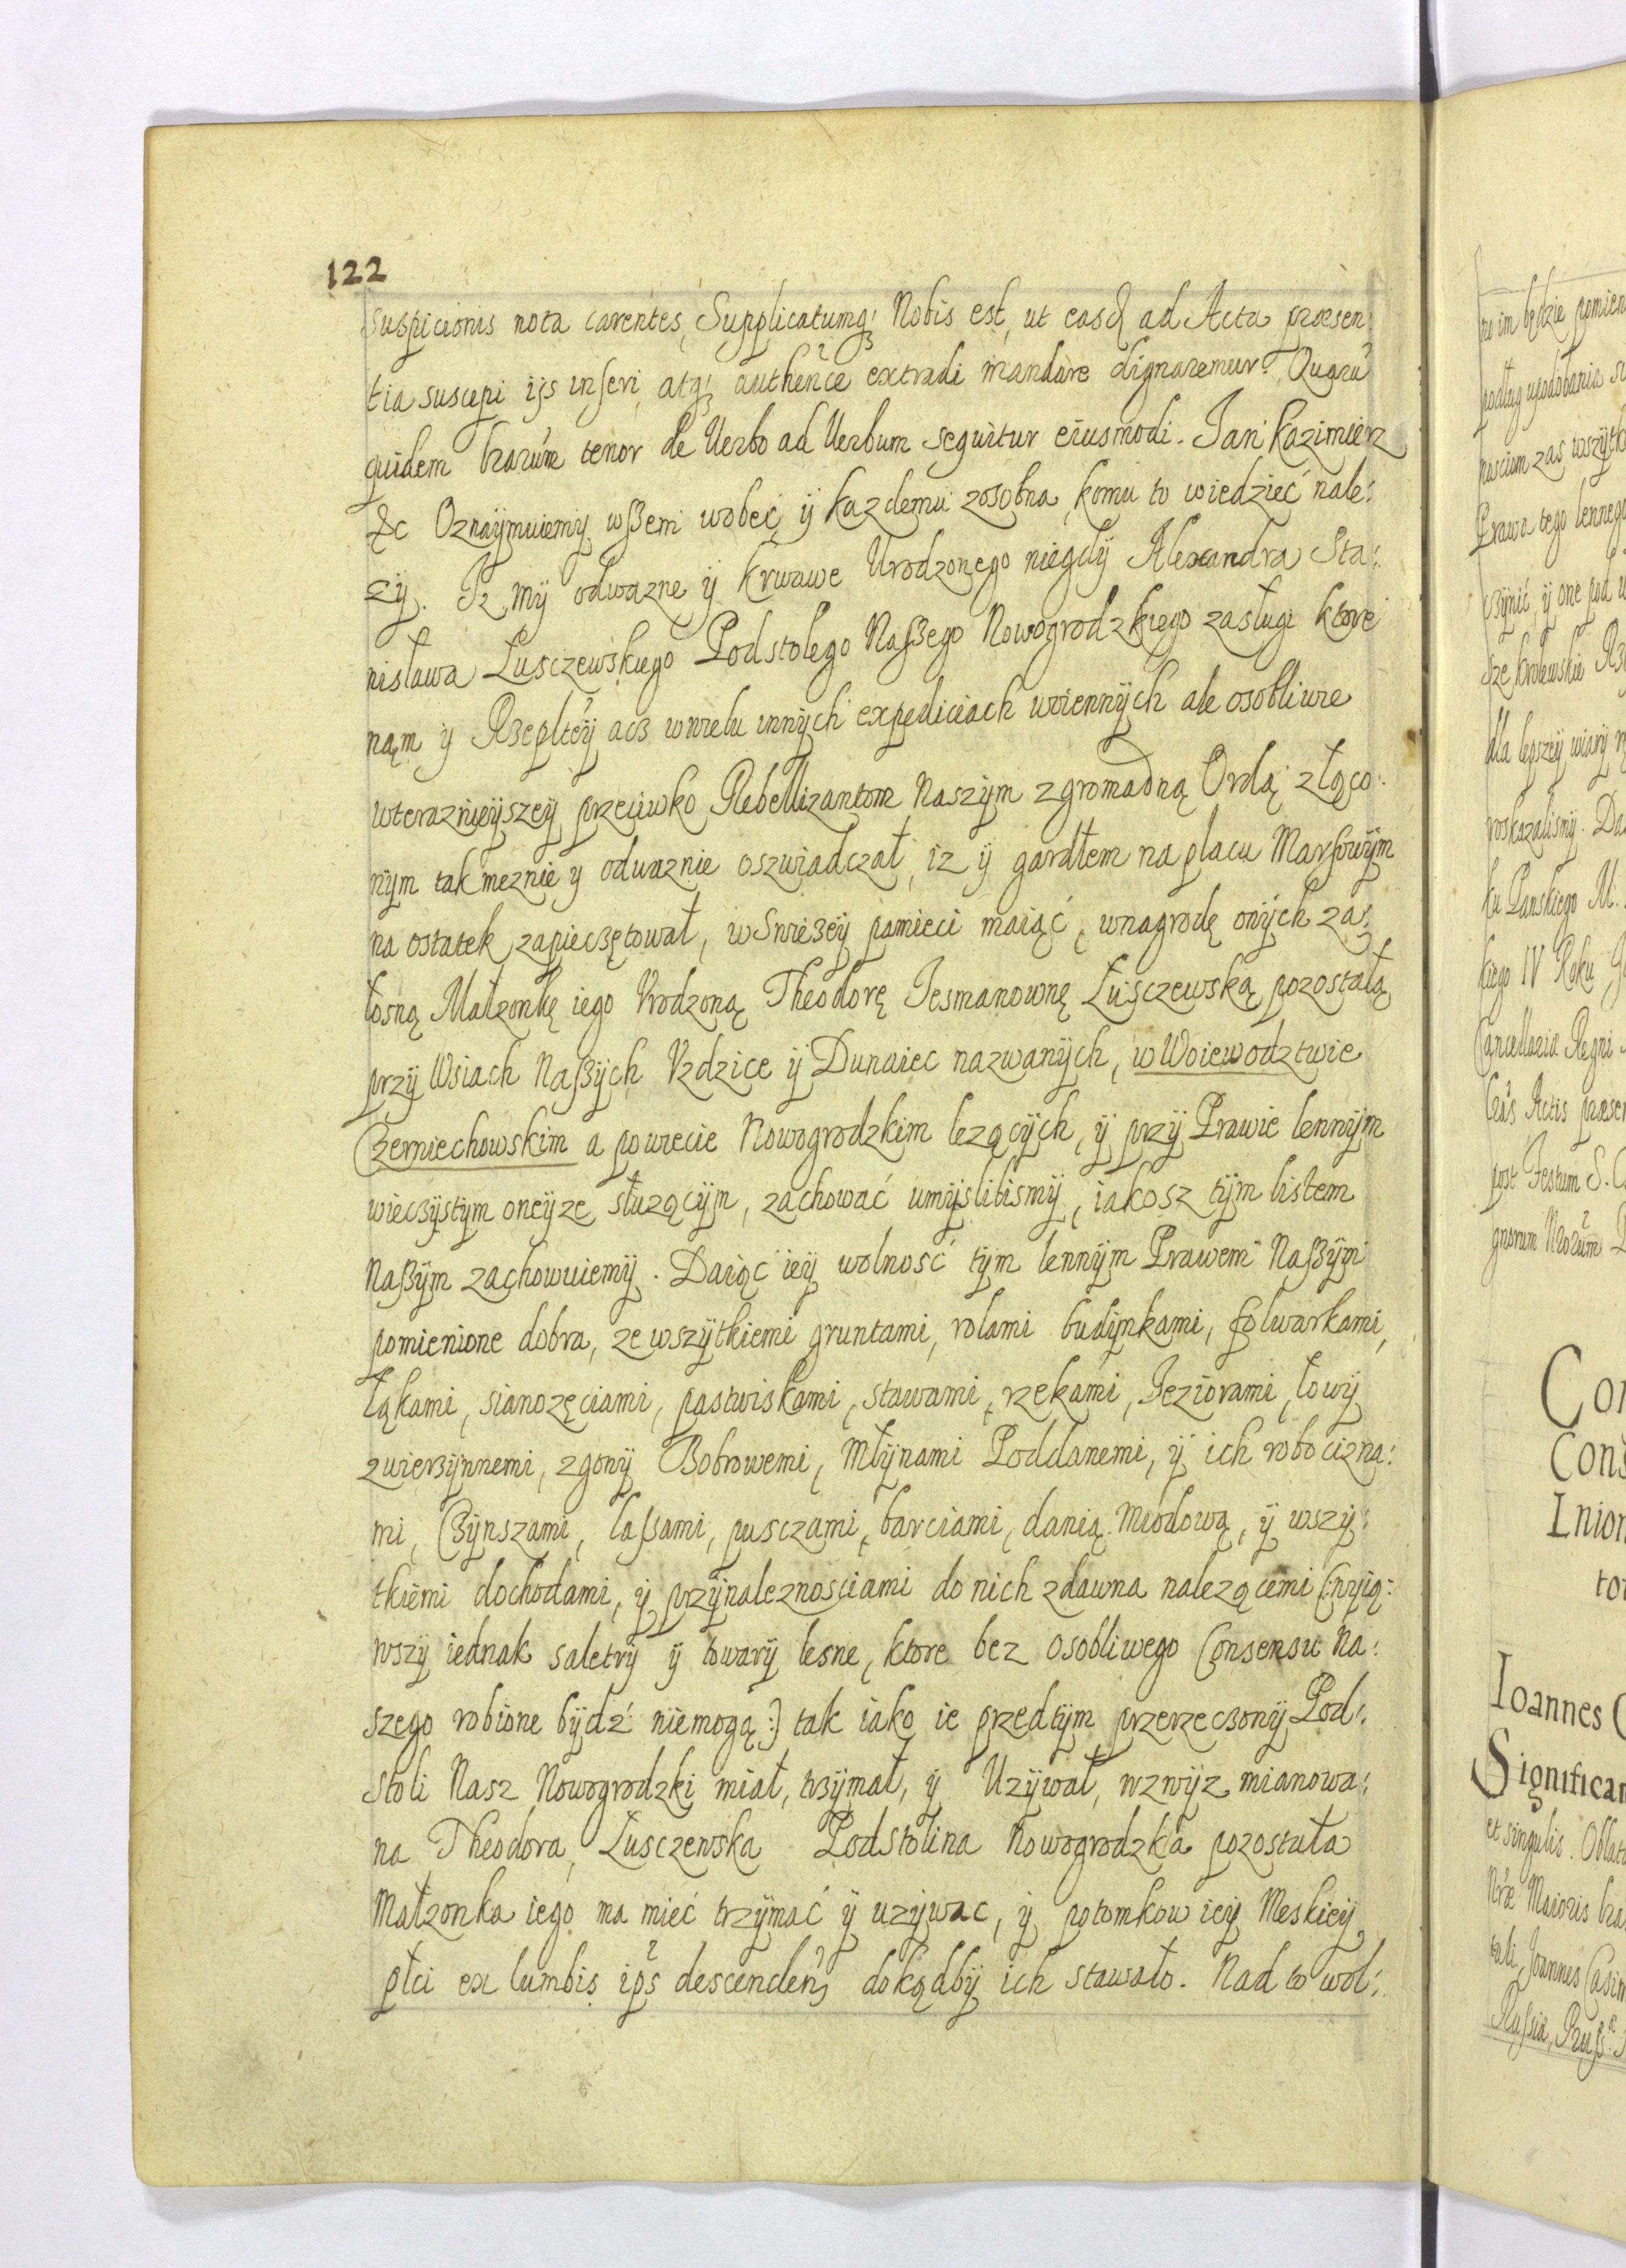 122
Suspicionis nota carentes, Supplicatumq; Nobis est, ut easd ad Acta praesen:
tia suscepi ijs inseri, atq; authence extradi mandare dignaremur. Quaru
quidem lrarum tenor de Uerbo ad Uerbum sequitur eiusmodi. Jan Kazimierz
&c Oznaÿmuiemÿ wßem wobec ÿ kazdemu zosobna, komu to wiedzieć nale:
zÿ. Iz mÿ odwazne ÿ krwawe Urodzonego niegdÿ Alexandra Sta:
nisława Łusczewskiego Podstolego Naßego Nowogrodzkiego zasługi ktore
nąm ÿ Rzeplteÿ acz wwielu innÿch expediciach woiennÿch ale osobliwie
wteraznieÿszeÿ przeciwko Rebellizantom Naszÿm zgromadną Ordą złączo:
nÿm tak meznie y odwaznie oszwiadczał, iz ÿ gardłem na placu Marsowÿm
na ostatek zapieczętował, w Swiezeÿ pamieci maiąć, wnagrodę onÿch za:
łosną Małzonkę iego Vrodzoną Theodorę Jesmanownę Łusczewską pozostałą
przÿ Wsiach Naßÿch Vzdzice ÿ Dunaiec nazwanÿch, w Woiewodztwie
Czerniechowskim a powiecie Nowogrodzkim lezącÿch, ÿ przÿ Prawie lennÿm
wieczÿstÿm oneÿze słuzącÿm, zachować umÿslilismÿ, iakosz tÿm listem
Naßÿm zachowuiemÿ. Daiąc ieÿ wolność tÿm lennÿm Prawem Naßÿm
pomienione dobra, ze wszÿtkiemi gruntami, rolami budÿnkami, folwarkami,
łąkami, sianozęciami, pastwiskami, stawami, rzekami, Jeziorami, łowÿ
zwierzÿnnemi, zgonÿ Bobrowemi, Młÿnami Poddanemi, ÿ ich robocizna:
mi, Czÿnszami, laßami, pusczami, barciami, danią Miodową, ÿ wszÿ:
tkiemi dochodami, ÿ przÿnaleznosciami do nich zdawna nalezącemi (:wÿią:
wszÿ iednak saletrÿ ÿ towarÿ lesne, ktore bez osobliwego Consensu Na:
szego robione bÿdź niemogą:) tak iako ie przedtÿm przerzeczonÿ Pod:
stoli Nasz Nowogrodzki miał, trzÿmał, ÿ Uzÿwał, wzwÿz mianowa:
na Theodora Łusczewska Podstolina Nowogrodzka pozostała
Małzonka iego ma mieć trzÿmać ÿ uzÿwac, ÿ potomkow ieÿ Meskieÿ
płci ex lumbis ips descenden, dokądbÿ ich stawało. Nad to wol:
no im będzie pomien
podług upodobania
nosciom zas wszÿtk
Prawa tego lennego
czÿnić, ÿ one pod
sze krolewskie
dla lepszeÿ wiarÿ
roskazalismÿ. Da
ku Panskiego M.
kiego IV Roku
Cancellaria Regni
lras Actis praesen
post Festum S.
gnorum Nrorum
Con
Cons
Joannes C
Significam
et singulis. Oblat
Nrae Maioris
tali, Joannes Casim
Russiae, Pruss.